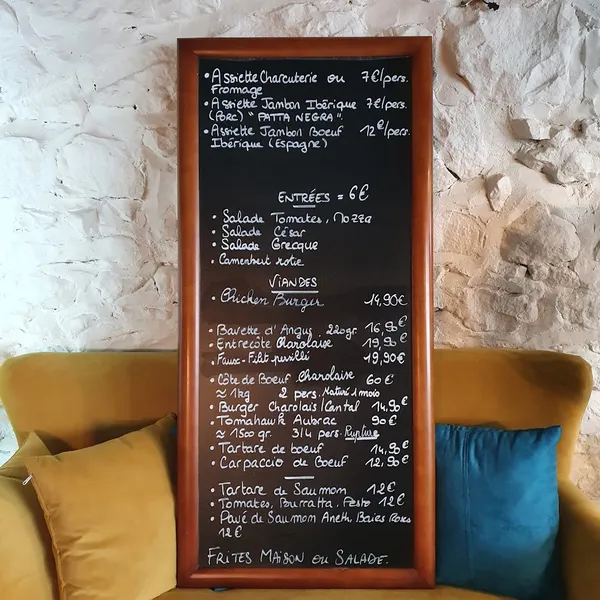 • Assiette Charcuterie ou 7€/pers.
Fromage
• Assiette Jambon Ibérique 7€/pers.
(Porc) "PATTA NEGRA".
• Assiette Jambon Boeuf 12€/pers.
Ibérique (Espagne)
ENTRÉES = 6€
• Salade Tomates, Mozza
• Salade César
• Salade Grecque
• Camembert rotie
VIANDES
• Chicken Burger 14,90€
• Bavette d'Angus. 220gr 16,90€
• Entrecôte Charolaise 19,90€
• Faux-Filet persillé 19,90€
• Côte de Boeuf Charolaise 60€
≈ 1kg 2 pers. Maturé 1 mois
• Burger Charolais/Cantal 14,90€
• Tomahawk Aubrac 90€
≈ 1500 gr. 3/4 pers. Rupture
• Tartare de boeuf 14,90€
• Carpaccio de Boeuf 12,90€
• Tartare de Saumon 12€
• Tomates, Burratta, Pesto 12€
• Pavé de Saumon Aneth, Baies Roses
12€
FRITES MAISON OU SALADE.